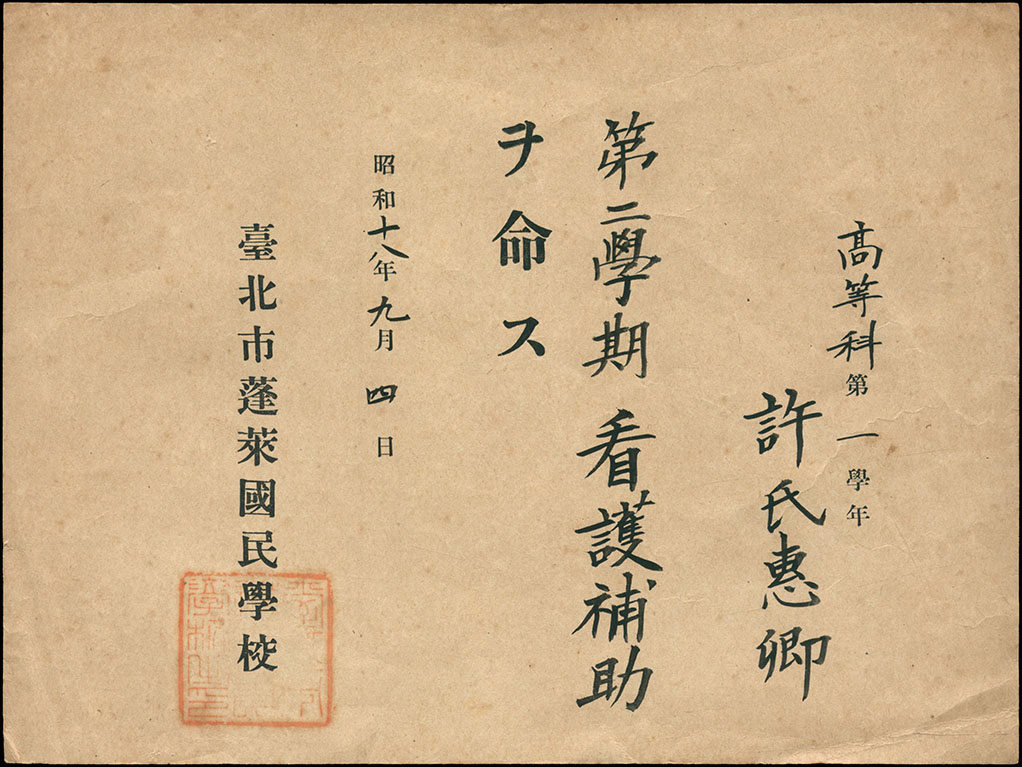 高等科第一學年
許氏惠卿
第二學期看護補助
ヲ命ス
昭和十八年九月四日
臺北市蓬萊國民學校